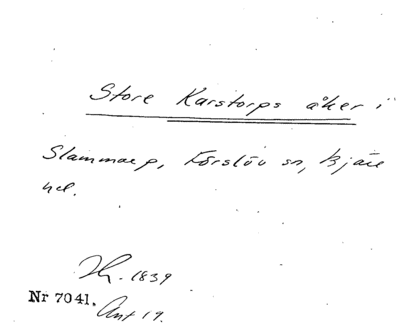 Store Karstorps åker i
Slammarp, Förslöv sn, Bjäre
hd.
1839
Nr 7041. Ant 19.